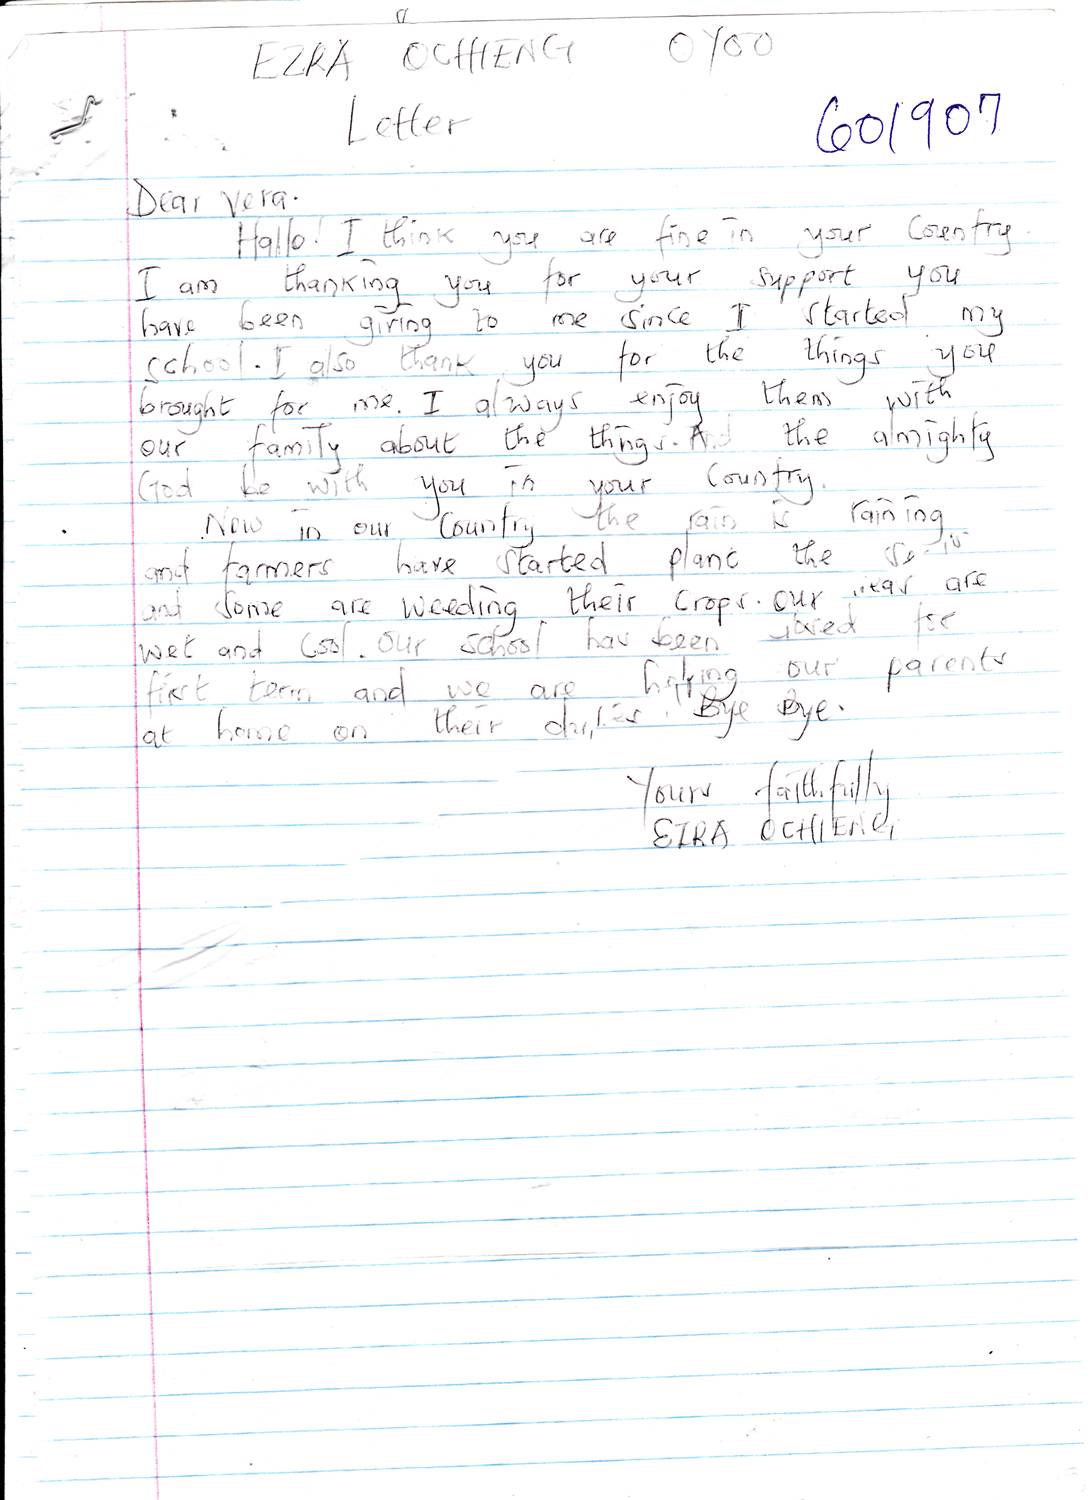 EZRA OCHIENG OYOO
Letter
601907
Dear Vera.
Hallo! I think you are fine in your Country.
I am thanking you for your support you
have been giving to me since I started my
school. I also thank you for the things you
brought for me. I always enjoy them with
our family about the things. And the almighty
God be with you in your Country.
Now in our Country the rain is raining
and farmers have started plant the
and some are weeding their crops. Our are
wet and Cool. Our school has been for
first term and we are our parents
at home on their duties. Bye Bye.
Yours faithfully
EZRA OCHIENG